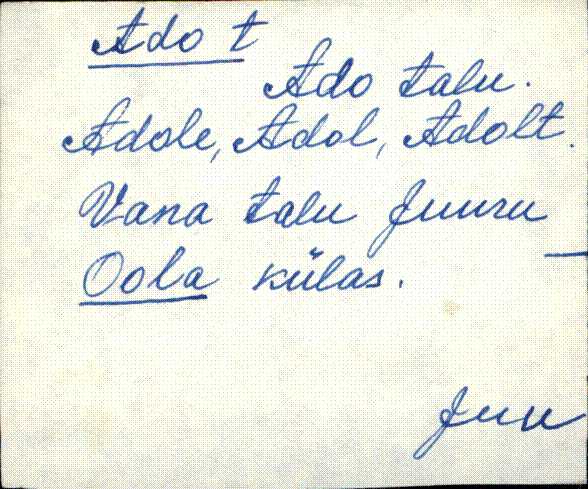 Ado t
Ado talu.
Adole, Adol, Adolt.
Vana talu Juuru
Oola külas.
Juu